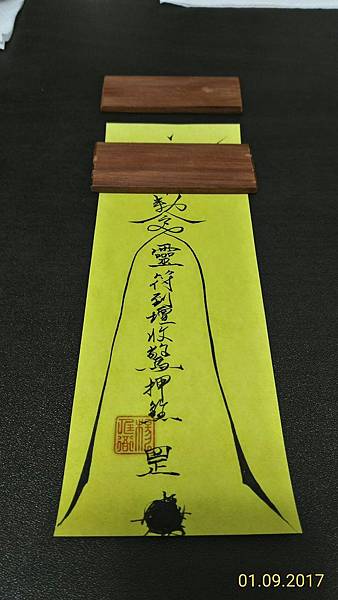 勅令
靈符到壇收驚押煞 罡
01.09.2017